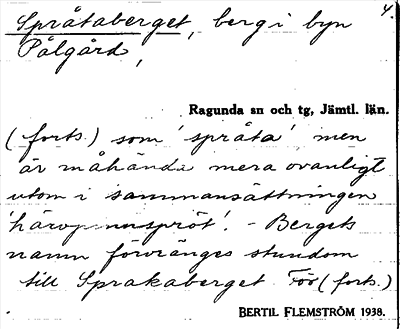 4.
Språtaberget, berg i byn
Pålgård,
Ragunda sn och tg, Jämtl. län.
(forts.) som 'språta' men
är måhända mera ovanligt
utom i sammansättningen
'härvgarnspröt'. - Bergets
namn förvränges stundom
till Sprakaberget. För (forts.)
BERTIL FLEMSTRÖM 1938.